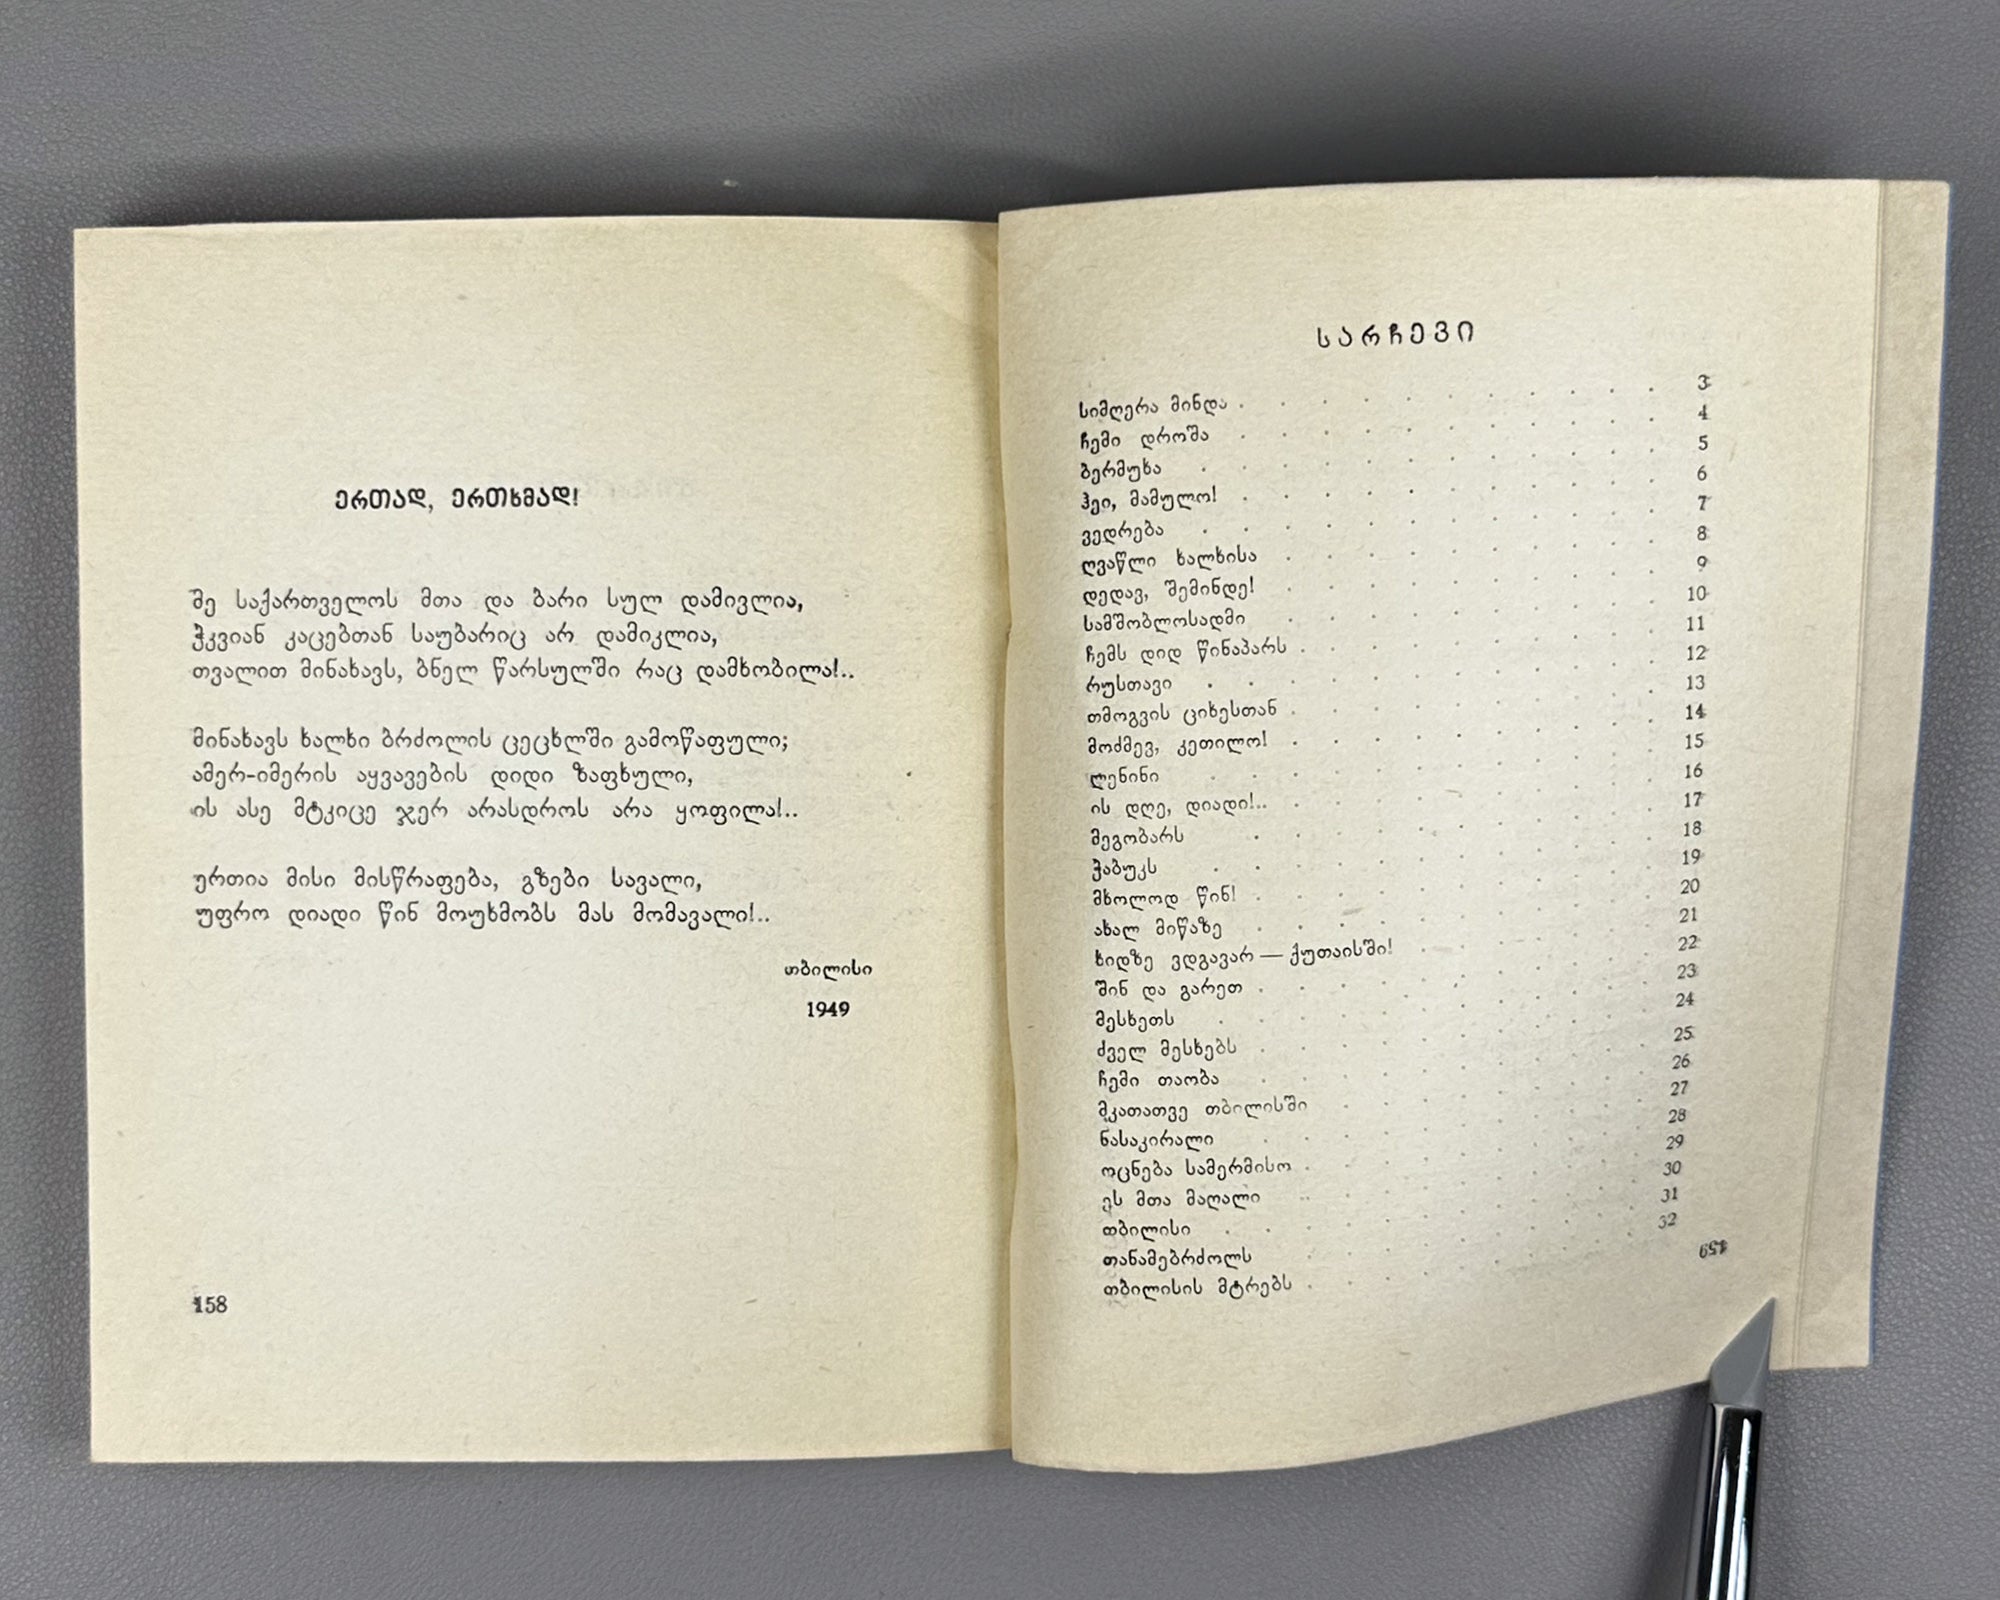 ერთად, ერთხმად!
მე საქართველოს მთა და ბარი სულ დამივლია,
ჭკვიან კაცებთან საუბარიც არ დამიკლია,
თვალით მინახავს, ბნელ წარსულში რაც დამხობილა!..
მინახავს ხალხი ბრძოლის ცეცხლში გამოწაფული;
ამერ-იმერის აყვავების დიდი ზაფხული,
ის ასე მტკიცე ჯერ არასდროს არა ყოფილა!..
ერთია მისი მისწრაფება, გზები სავალი,
უფრო დიადი წინ მოუხმობს მას მომავალი!..
თბილისი
1949
158
სარჩევი
სიმღერა მინდა . . . . . . . . . . . 3
ჩემი დროშა . . . . . . . . . . . 4
ბერმუხა . . . . . . . . . . . . 5
ჰეი, მამულო! . . . . . . . . . . . 6
ვედრება . . . . . . . . . . . . 7
ღვაწლი ხალხისა . . . . . . . . . . 8
დედავ, შემინდე! . . . . . . . . . . 9
სამშობლოსადმი . . . . . . . . . . 10
ჩემს დიდ წინაპარს . . . . . . . . . 11
რუსთავი . . . . . . . . . . . . 12
თმოგვის ციხესთან . . . . . . . . . . 13
მოძმევ, კეთილო! . . . . . . . . . . 14
ლენინი . . . . . . . . . . . . 15
ის დღე, დიადი!.. . . . . . . . . . . 16
მეგობარს . . . . . . . . . . . 17
ჭაბუკს . . . . . . . . . . . . 18
მხოლოდ წინ! . . . . . . . . . . . 19
ახალ მიწაზე . . . . . . . . . . . 20
ხიდზე ვდგავარ — ქუთაისში! . . . . . . . 21
შინ და გარეთ . . . . . . . . . . . 22
მესხეთს . . . . . . . . . . . . 23
ძველ მესხებს . . . . . . . . . . . 24
ჩემი თაობა . . . . . . . . . . . 25
მკათათვე თბილისში . . . . . . . . . 26
ნასაკირალი . . . . . . . . . . . 27
ოცნება სამერმისო . . . . . . . . . . 28
ეს მთა მაღალი . . . . . . . . . . 29
თბილისი . . . . . . . . . . . . 30
თანამებრძოლს . . . . . . . . . . 31
თბილისის მტრებს . . . . . . . . . . 32
159